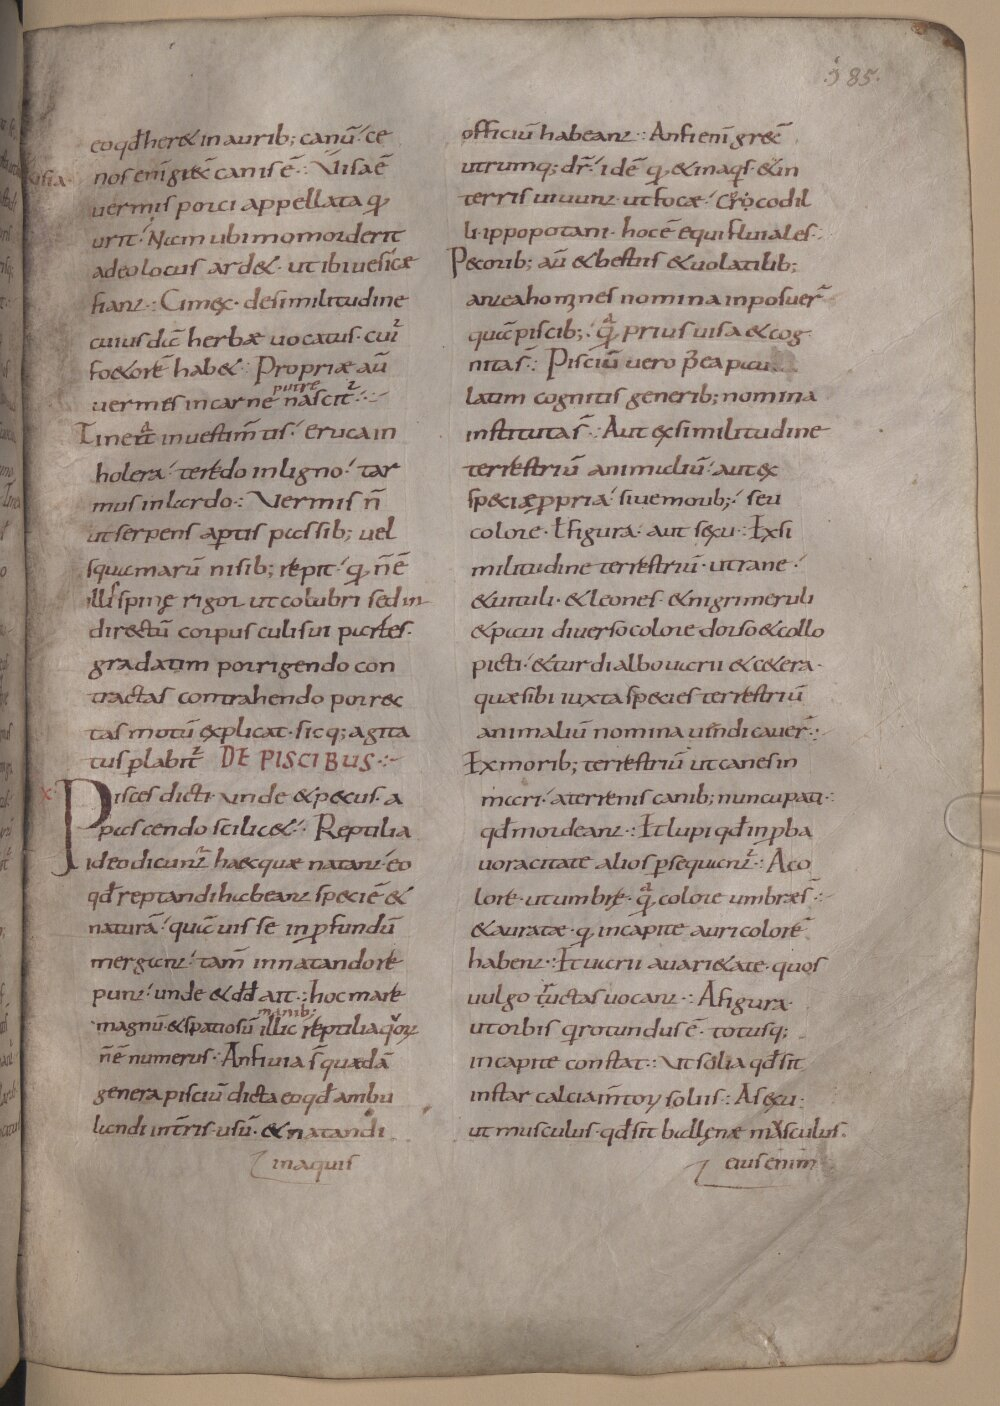 .385.
eo qđ heret in aurib; canū. ce
nos eni᷆ grec̄ canis ē. Visia ē
vermis porci appellata qꝫ
urit. Nam ubi momorderit
adeo locus ardet. ut ibi vesicae
fiant. Cimex. de similitudine
cuius dic̄ herbae vocatus. cuiꝰ
foetorē habet. Propriae aū
putre
vermes in carne nascit᷑.
Tinea in vestim̄tis. eruca in
holera. teredo in ligno. tar
mus in lardo. Vermis n̄
ut serpens aptis passib; vel
squamarū nisib; repit. qꝫ n̄ ē
illis spinę rigor ut colubri sed in
directū corpus culi sui partes.
gradatim porrigendo con
tractas contrahendo porrec
tas motū explicat. sicq; agita
tus ꝑlabit᷑ DE PISCIBUS.
Pisces dicti. unde et pecus. a
pascendo scilicet. Reptilia
ideo dicunt᷑ haec quae natant. eo
qđ reptandi habeant speciē et
naturā. quāvis se in ꝓfundū
mergant. tam̄ in natando re
punt. unde et dđ ait. hoc mare
manib;
magnū. et spatiosū illic reptilia quoꝝ
n̄ ē numerus. Anfivia s̄ quedā
genera pisciū dicta eo qđ ambu
landi in tr̄ris. usū. et natandi
in aquis
officiū habeant. Anfi eni᷆ grec̄
utrumq; dr̄. id ē qꝫ et in aqs. et in
terris vivunt. ut focae. Crocodil
li. ippopotani. hoc ē equi fluviales.
Pecorib; aū et bestiis et volatilib;
antea homines nomina inposuer̄
quā piscib; qa prius visa et cog
nita s̄. Pisciū vero p̄ea
latim cognitis generib; nomina
instituta s̄. Aut ex similitudine
terrestriū animaliū. aut ex
speciae ꝓpria. sive morib; seu
colore. ł figura. aut sexu. Ex si
militudine terrestriū. ut rane.
et vituli. et leones. et nigri meruli
et pavi diverso colore dorso et collo
picti. et turdi albo varii et cetera.
quae sibi iuxta species terrestriū
animaliū nomina vindicaver̄.
Ex morib; terrestriū ut canes in
mari. a terrenis canib; nuncupati.
qđ mordeant. Et lupi qđ inꝓba
voracitate alios ꝑsequant᷑. A co
lore. ut umbre. qa colore umbrae s̄.
et auratae. qꝫ in capite auri colorē
habent. Et varii a varietate. quos
vulgo tructas vocant. A figura.
ut orbis qꝫ rotundus ē. totusq;
in capite constat. Ut solia qđ sit
instar calciam̄toꝝ soliis. A sexu.
ut musculus. qđ sit ballenae masculus.
eius enim